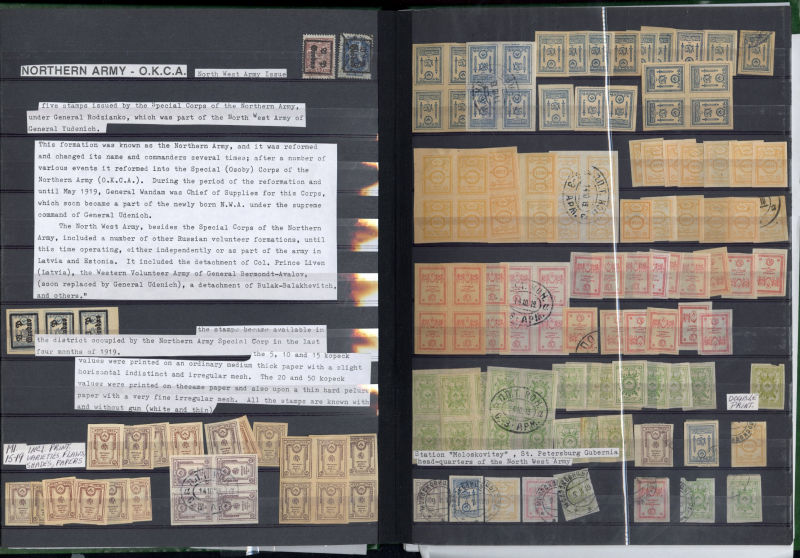 NORTHERN ARMY - O.K.C.A.
North West Army Issue
five stamps issued by the Special Corps of the Northern Army,
under General Rodzianko, which was part of the North West Army of
General Yudenich.
This formation was known as the Northern Army, and it was reformed
and changed its name and commanders several times; after a number of
various events it reformed into the Special (Osoby) Corps of the
Northern Army (O.K.C.A.). During the period of the reformation and
until May 1919, General Wandam was Chief of Supplies for this Corps,
which soon became a part of the newly born N.W.A. under the supreme
command of General Udenich.
The North West Army, besides the Special Corps of the Northern
Army, included a number of other Russian volunteer formations, until
this time operating, either independently or as part of the army in
Latvia and Estonia. It included the detachment of Col. Prince Liven
(Latvia), the Western Volunteer Army of General Bermondt-Avalov,
(soon replaced by General Udenich), a detachment of Bulak-Balakhevitch,
and others."
the stamps became available in
the district occupied by the Northern Army Special Corp in the last
four months of 1919.
the 5, 10 and 15 kopeck
values were printed on an ordinary medium thick paper with a slight
horizontal indistinct and irregular mesh. The 20 and 50 kopeck
values were printed on thesame paper and also upon a thin hard pelure
paper with a very fine irregular mesh. All the stamps are known with
and without gun (white and thin)
MI
15-19
INCL PRINT
VARIETIES FLAWS
SHADES, PAPERS
DOUBLE
PRINT.
Station "Moloskovitsy", St. Petersburg Gubernia
head-quarters of the North West Army